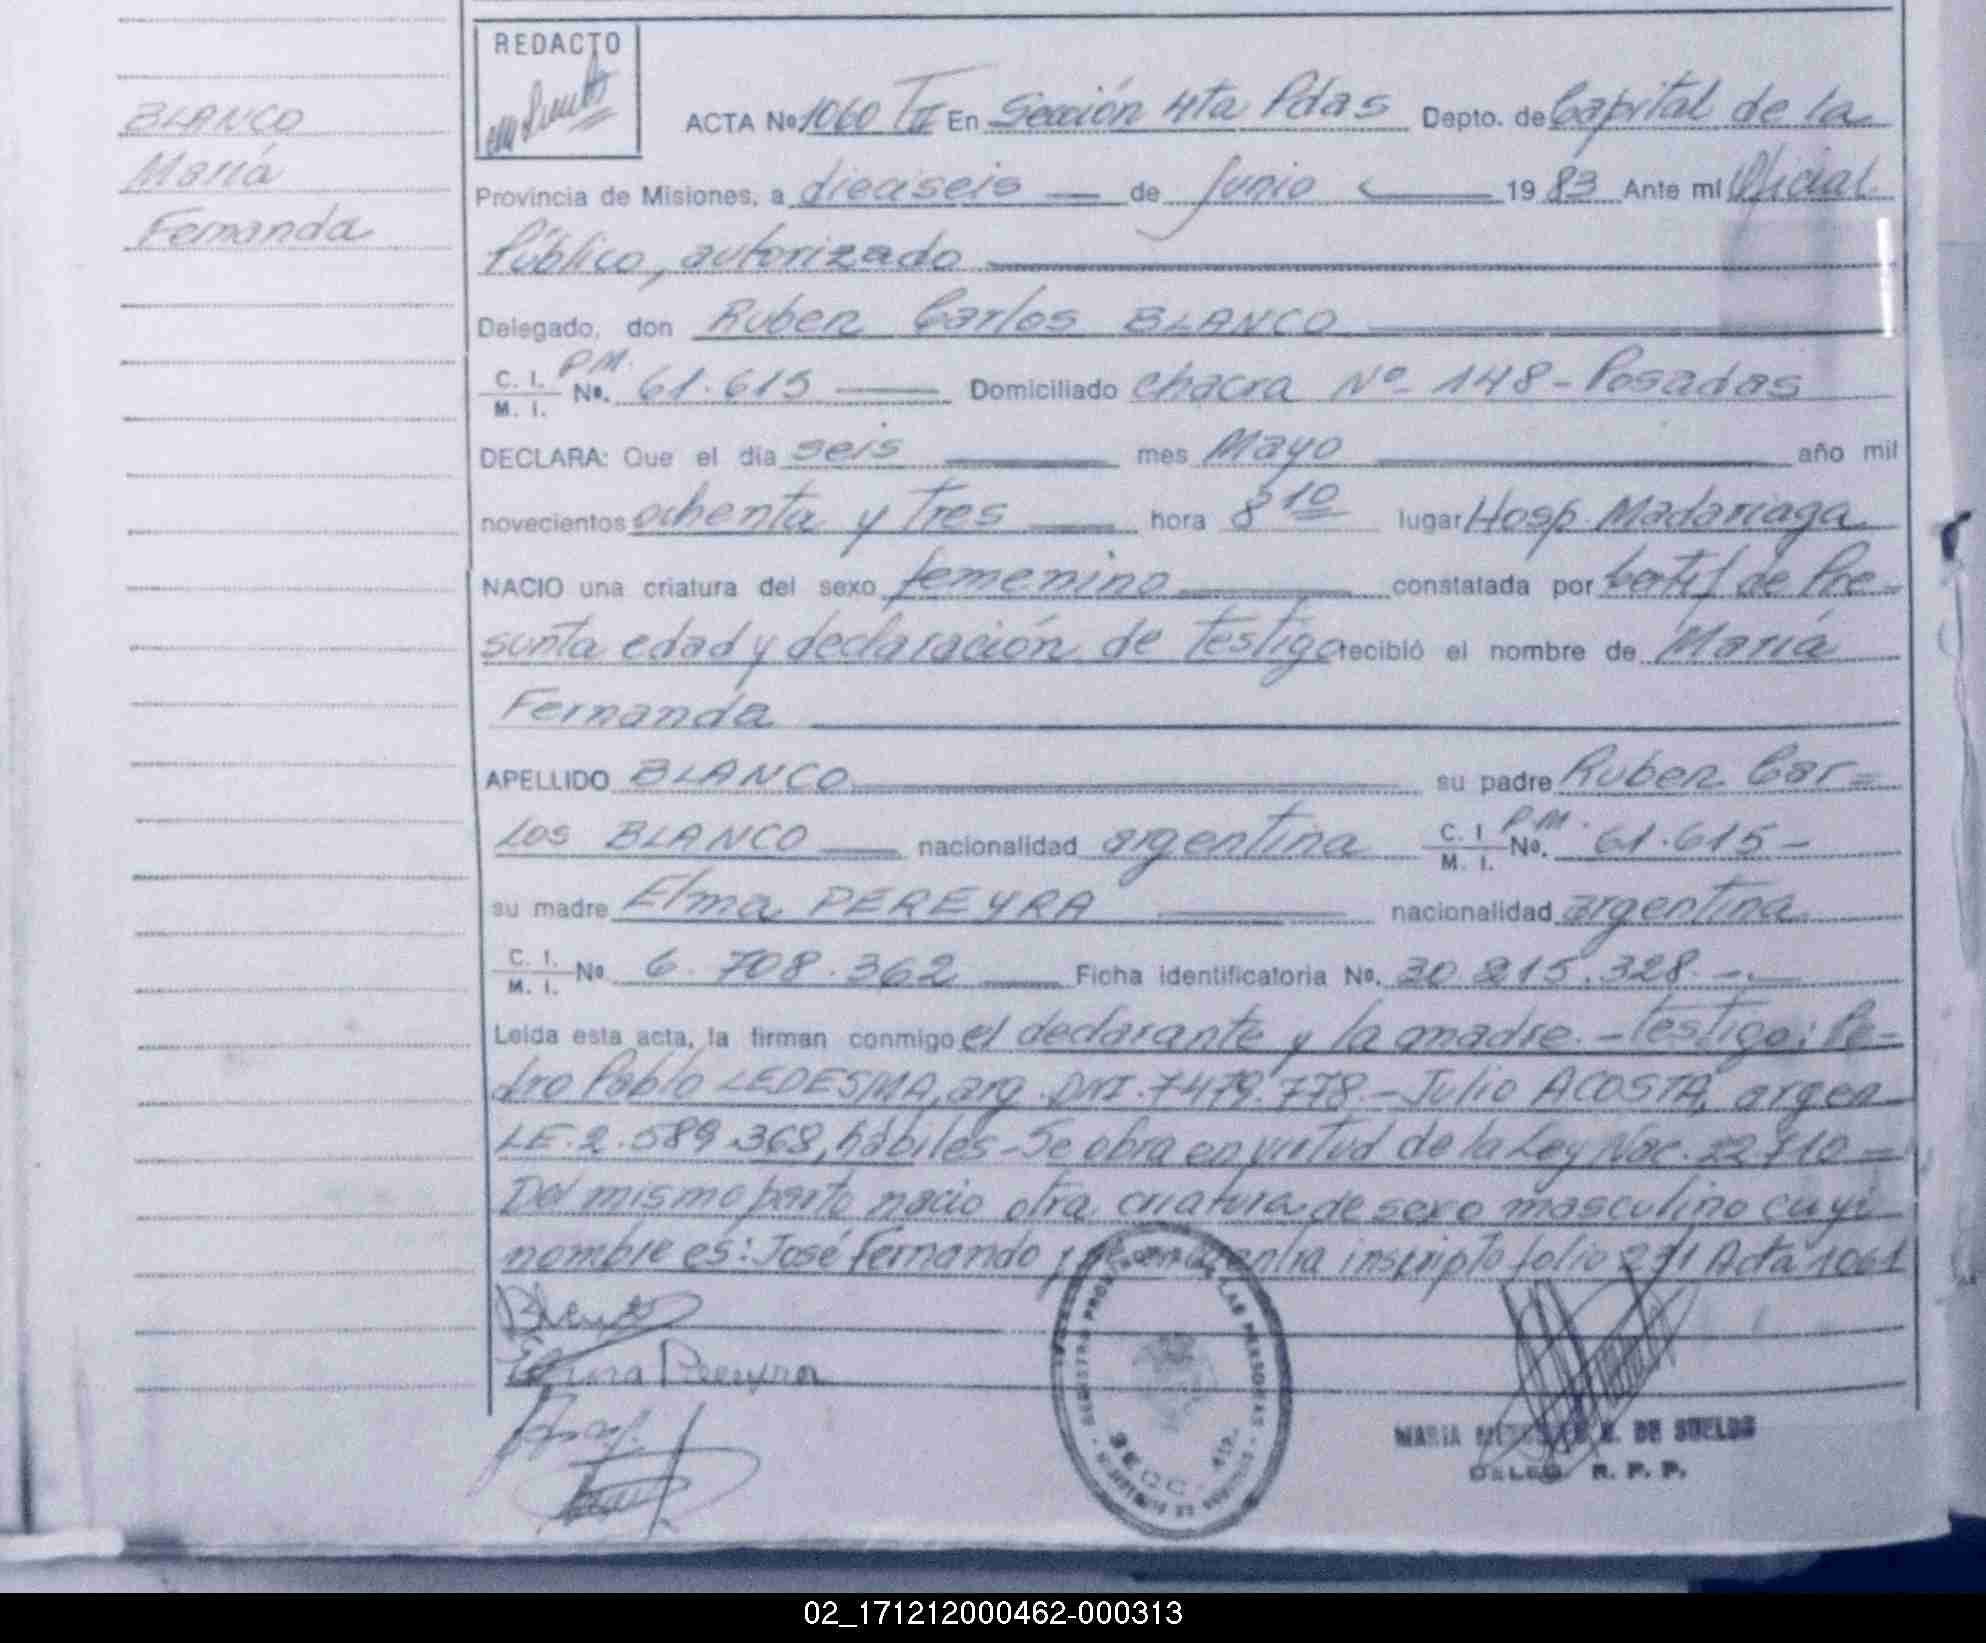 BLANCO
María
Fernanda
REDACTO
ACTA Nº 1060 TII En Sección 4ta Pdas Depto. de Capital de la
Provincia de Misiones, a dieciseis de Junio 1983 Ante mi Oficial
Público, autorizado
Delegado, don Ruben Carlos BLANCO
C. I. P.M.
M. I. No. 61.615 Domiciliado chacra Nº 148 - Posadas
DECLARA: Que el día seis mes Mayo año mil
novecientos ochenta y tres hora 8 10 lugar Hosp. Madariaga
NACIO una criatura del sexo femenino constatada por Certif de Pre-
sunta edad y declaración de testigo recibió el nombre de María
Fernanda
APELLIDO BLANCO su padre Ruben Car=
los BLANCO nacionalidad argentina C. I. M. I. P.M. No. 61.615-
su madre Elma PEREYRA nacionalidad argentina
C. I. M. I. No 6.708.362 Ficha identificatoria No. 30.215.328.-
Leída esta acta, la firman conmigo el declarante y la madre.- Testigo: Pe-
dro Pablo LEDESMA, arg. DNI. 7479.778.- Julio ACOSTA, argen
LE. 2.589.368, hábiles - Se obra en virtud de la Ley Nac. 22710 =
Del mismo parto nacio otra criatura de sexo masculino cuyo
nombre es: José Fernando y se encuentra inscripto folio Acta 1061
Elma Pereyra
REGISTRO PROVINCIAL DE LAS PERSONAS
SECC. 4ta.
MARIA DE SUELDO
DELEG. R. P. P.
02_171212000462-000313